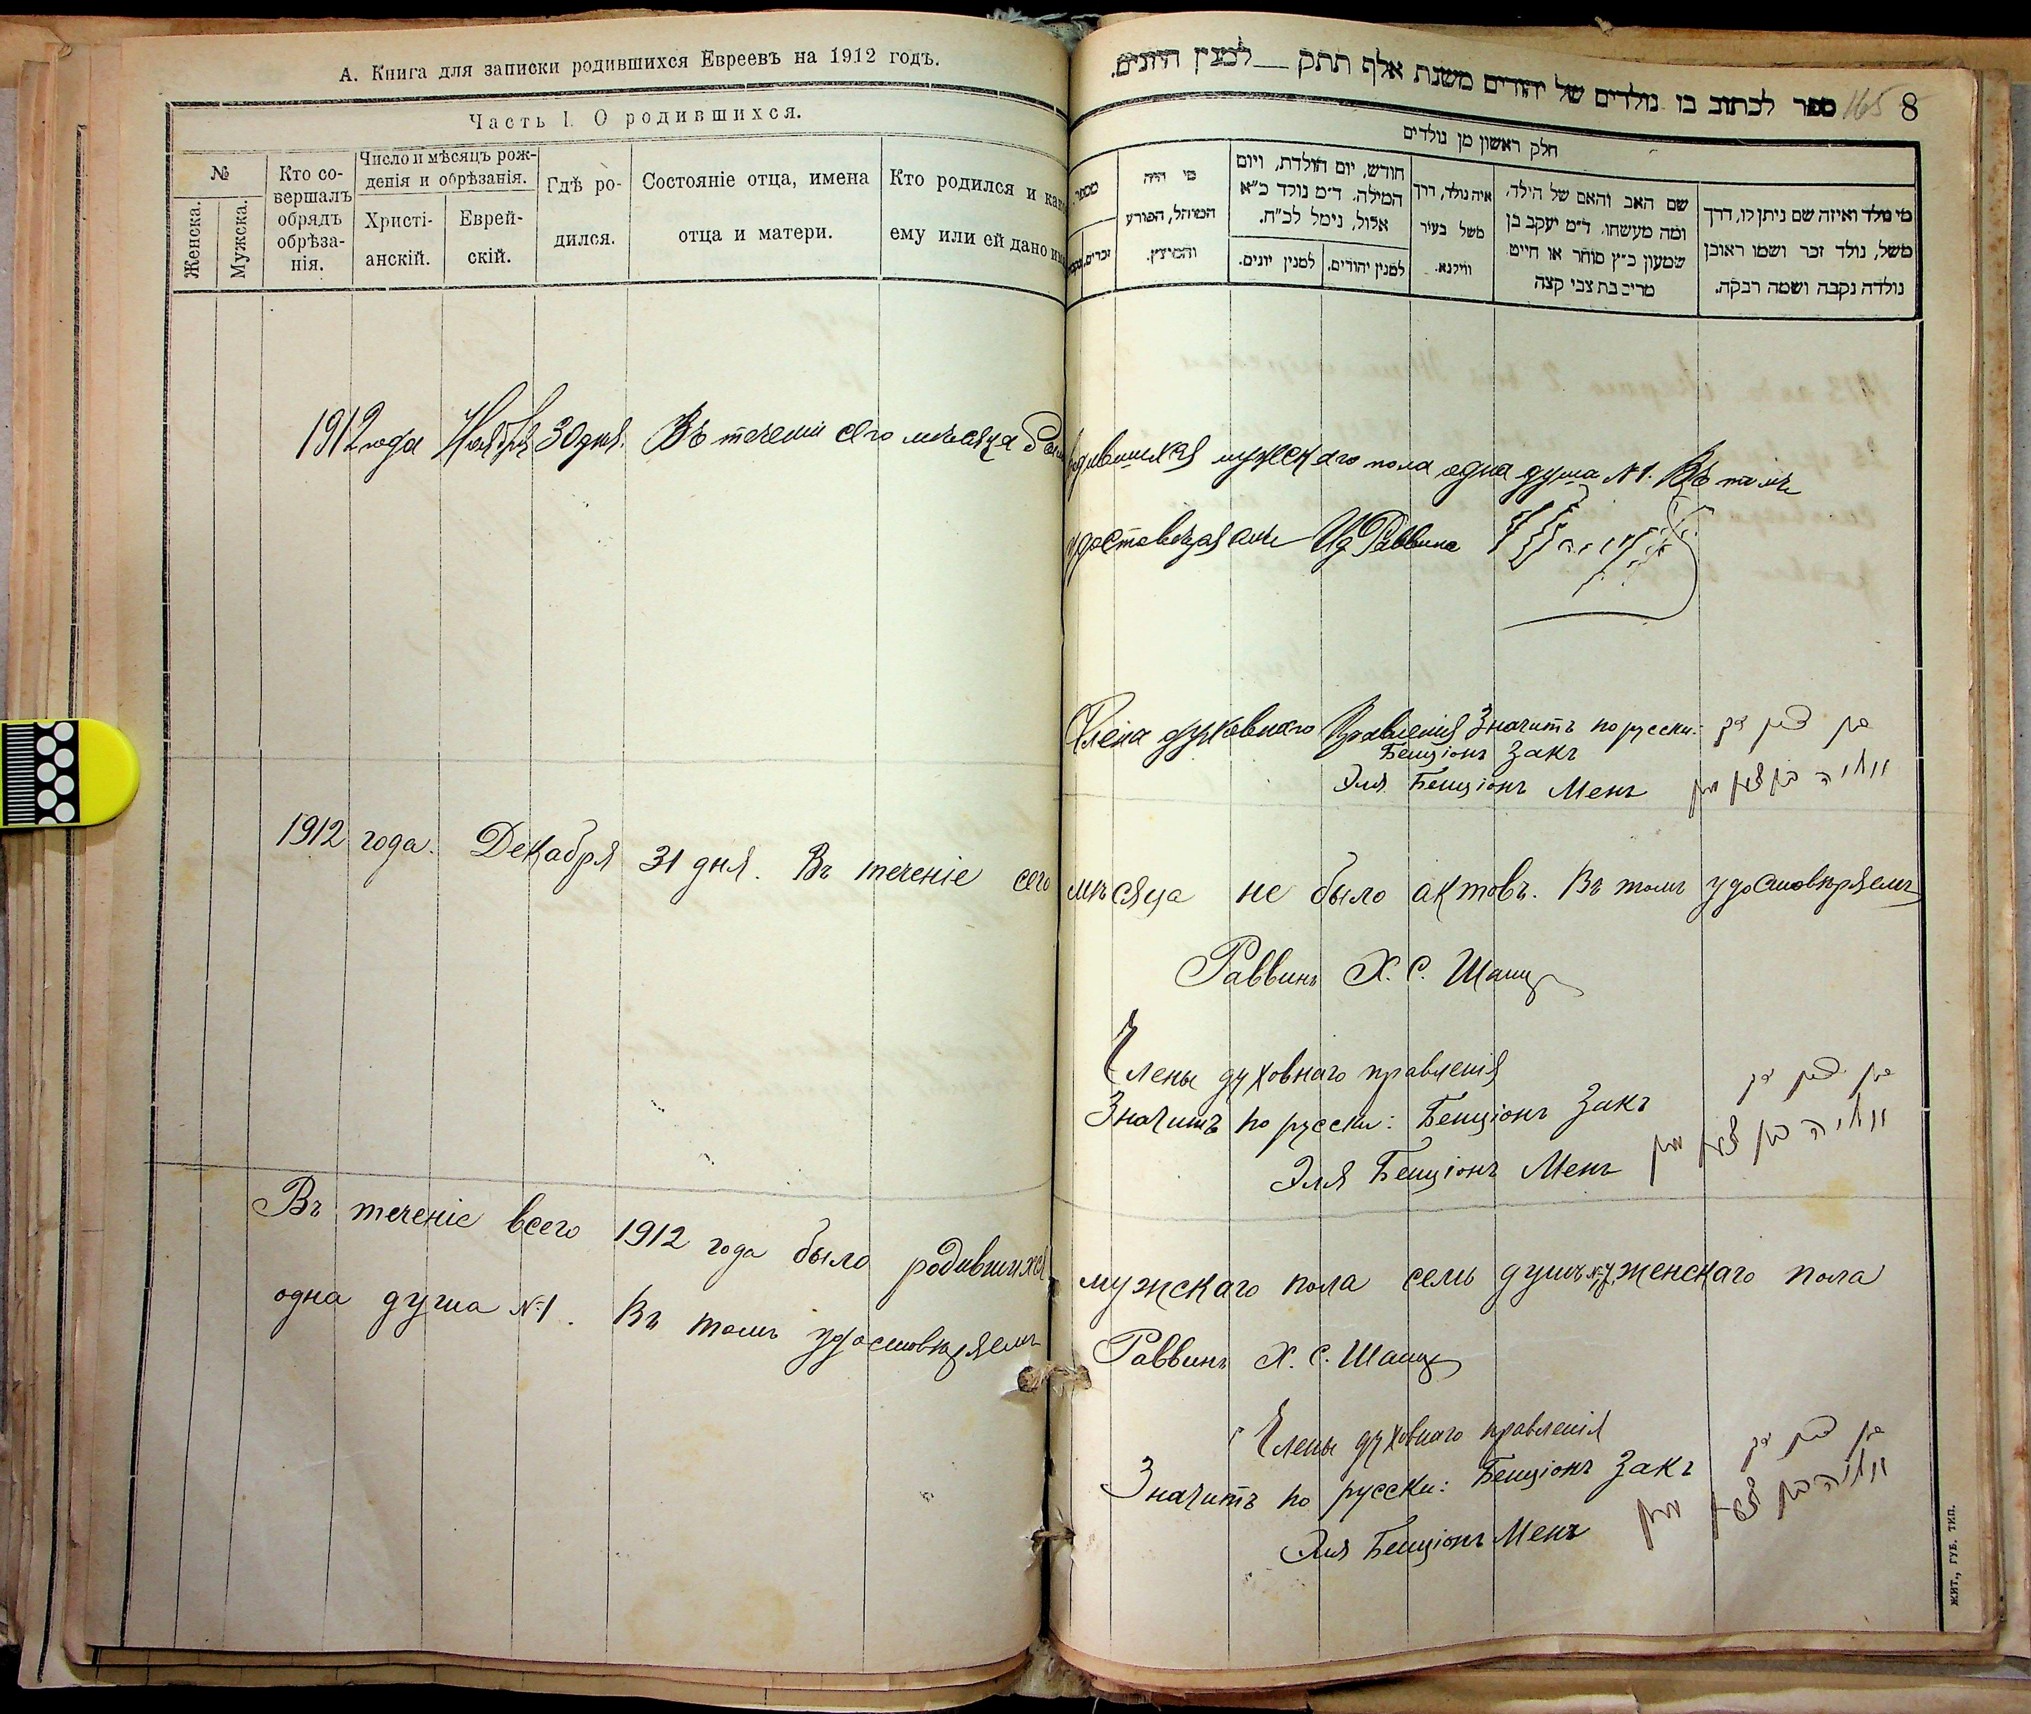 А. Книга для записки родившихся Евреевъ на 1912 годъ.
Часть I. О родившихся.
№
Женска.
Мужска.
Кто со-
вершалъ
обрядъ
обрѣза-
нія.
Число и мѣсяцъ рож-
денія и обрѣзанія.
Христі-
анскій.
Еврей-
скій.
Гдѣ ро-
дился.
Состояніе отца, имена
отца и матери.
Кто родился и как
ему или ей дано им
ספר לכתוב בו נולדים של יהודים משנת אלף תתק — למנין היונים.
165 8
חלק ראשון מן נולדים
מי נולד ואיזה שם ניתן לו, דרך
משל, נולד זכר ושמו ראובן
נולדה נקבה ושמה רבקה.
שם האב והאם של הילד,
ומה מעשהו. ד״מ יעקב בן
שמעון כ״ץ סוחר או חייט
מרים בת צבי קצה
איה נולד, דרך
משל בעיר
ווילנא.
חודש, יום הולדת, ויום
המילה. ד״מ נולד כ״א
אלול, נימל לכ״ח.
למנין יהודים.
למנין יונים.
מי היה
המוהל, הפורע
והמוצץ.
מספר.
זכרים.
1912 года Ноября 30 дня. Въ теченіи сего мѣсяца было родившихся мужескаго пола одна душа №1. Въ томъ
удостовѣряемъ Ид Раввина
Члена духовнаго Правленія Значитъ по русски:
Бенціонъ Закъ
Эля Бенціонъ Менъ
1912 года. Декабря 31 дня. Въ теченіе сего мѣсяца не было актовъ. Въ томъ удостовѣряемъ
Раввинъ Х. С.
Члены духовнаго правленія
Значитъ по русски: Бенціонъ Закъ
Эля Бенціонъ Менъ
Въ теченіе всего 1912 года было родившихся мужскаго пола семь душъ №7, женскаго пола
одна душа №1. Въ томъ удостовѣряемъ Раввинъ Х. С.
Члены духовнаго правленія
Значитъ по русски: Бенціонъ Закъ
Эля Бенціонъ Менъ
ЖИТ., ГУБ. ТИП.